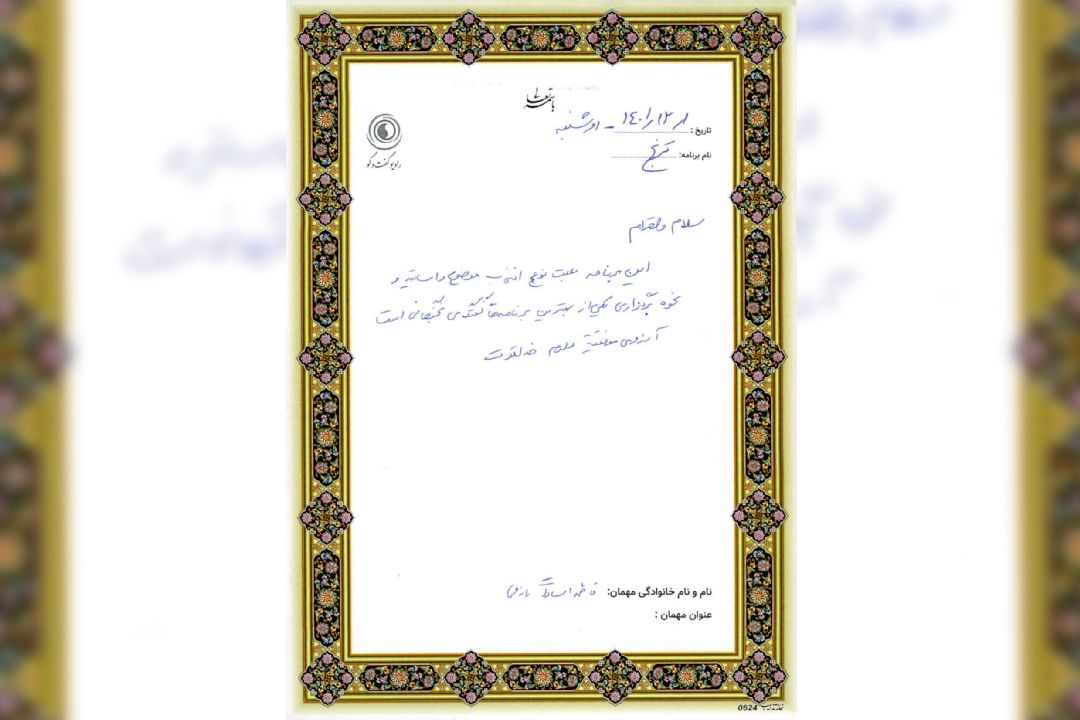 باسمه تعالی
تاریخ: ۱۴۰۱/۱۲/۸ -
نام برنامه: ترنج
رادیو گفت و گو
سلام و احترام
این برنامه جهت نوع انتخاب موضوع و اساتید و
نحوه برگزاری یکی از بهترین برنامه‌های گفتگوی است
آرزوی موفقیت دارم خدا قوت
نام و نام خانوادگی مهمان: فاطمه
عنوان مهمان:
0624